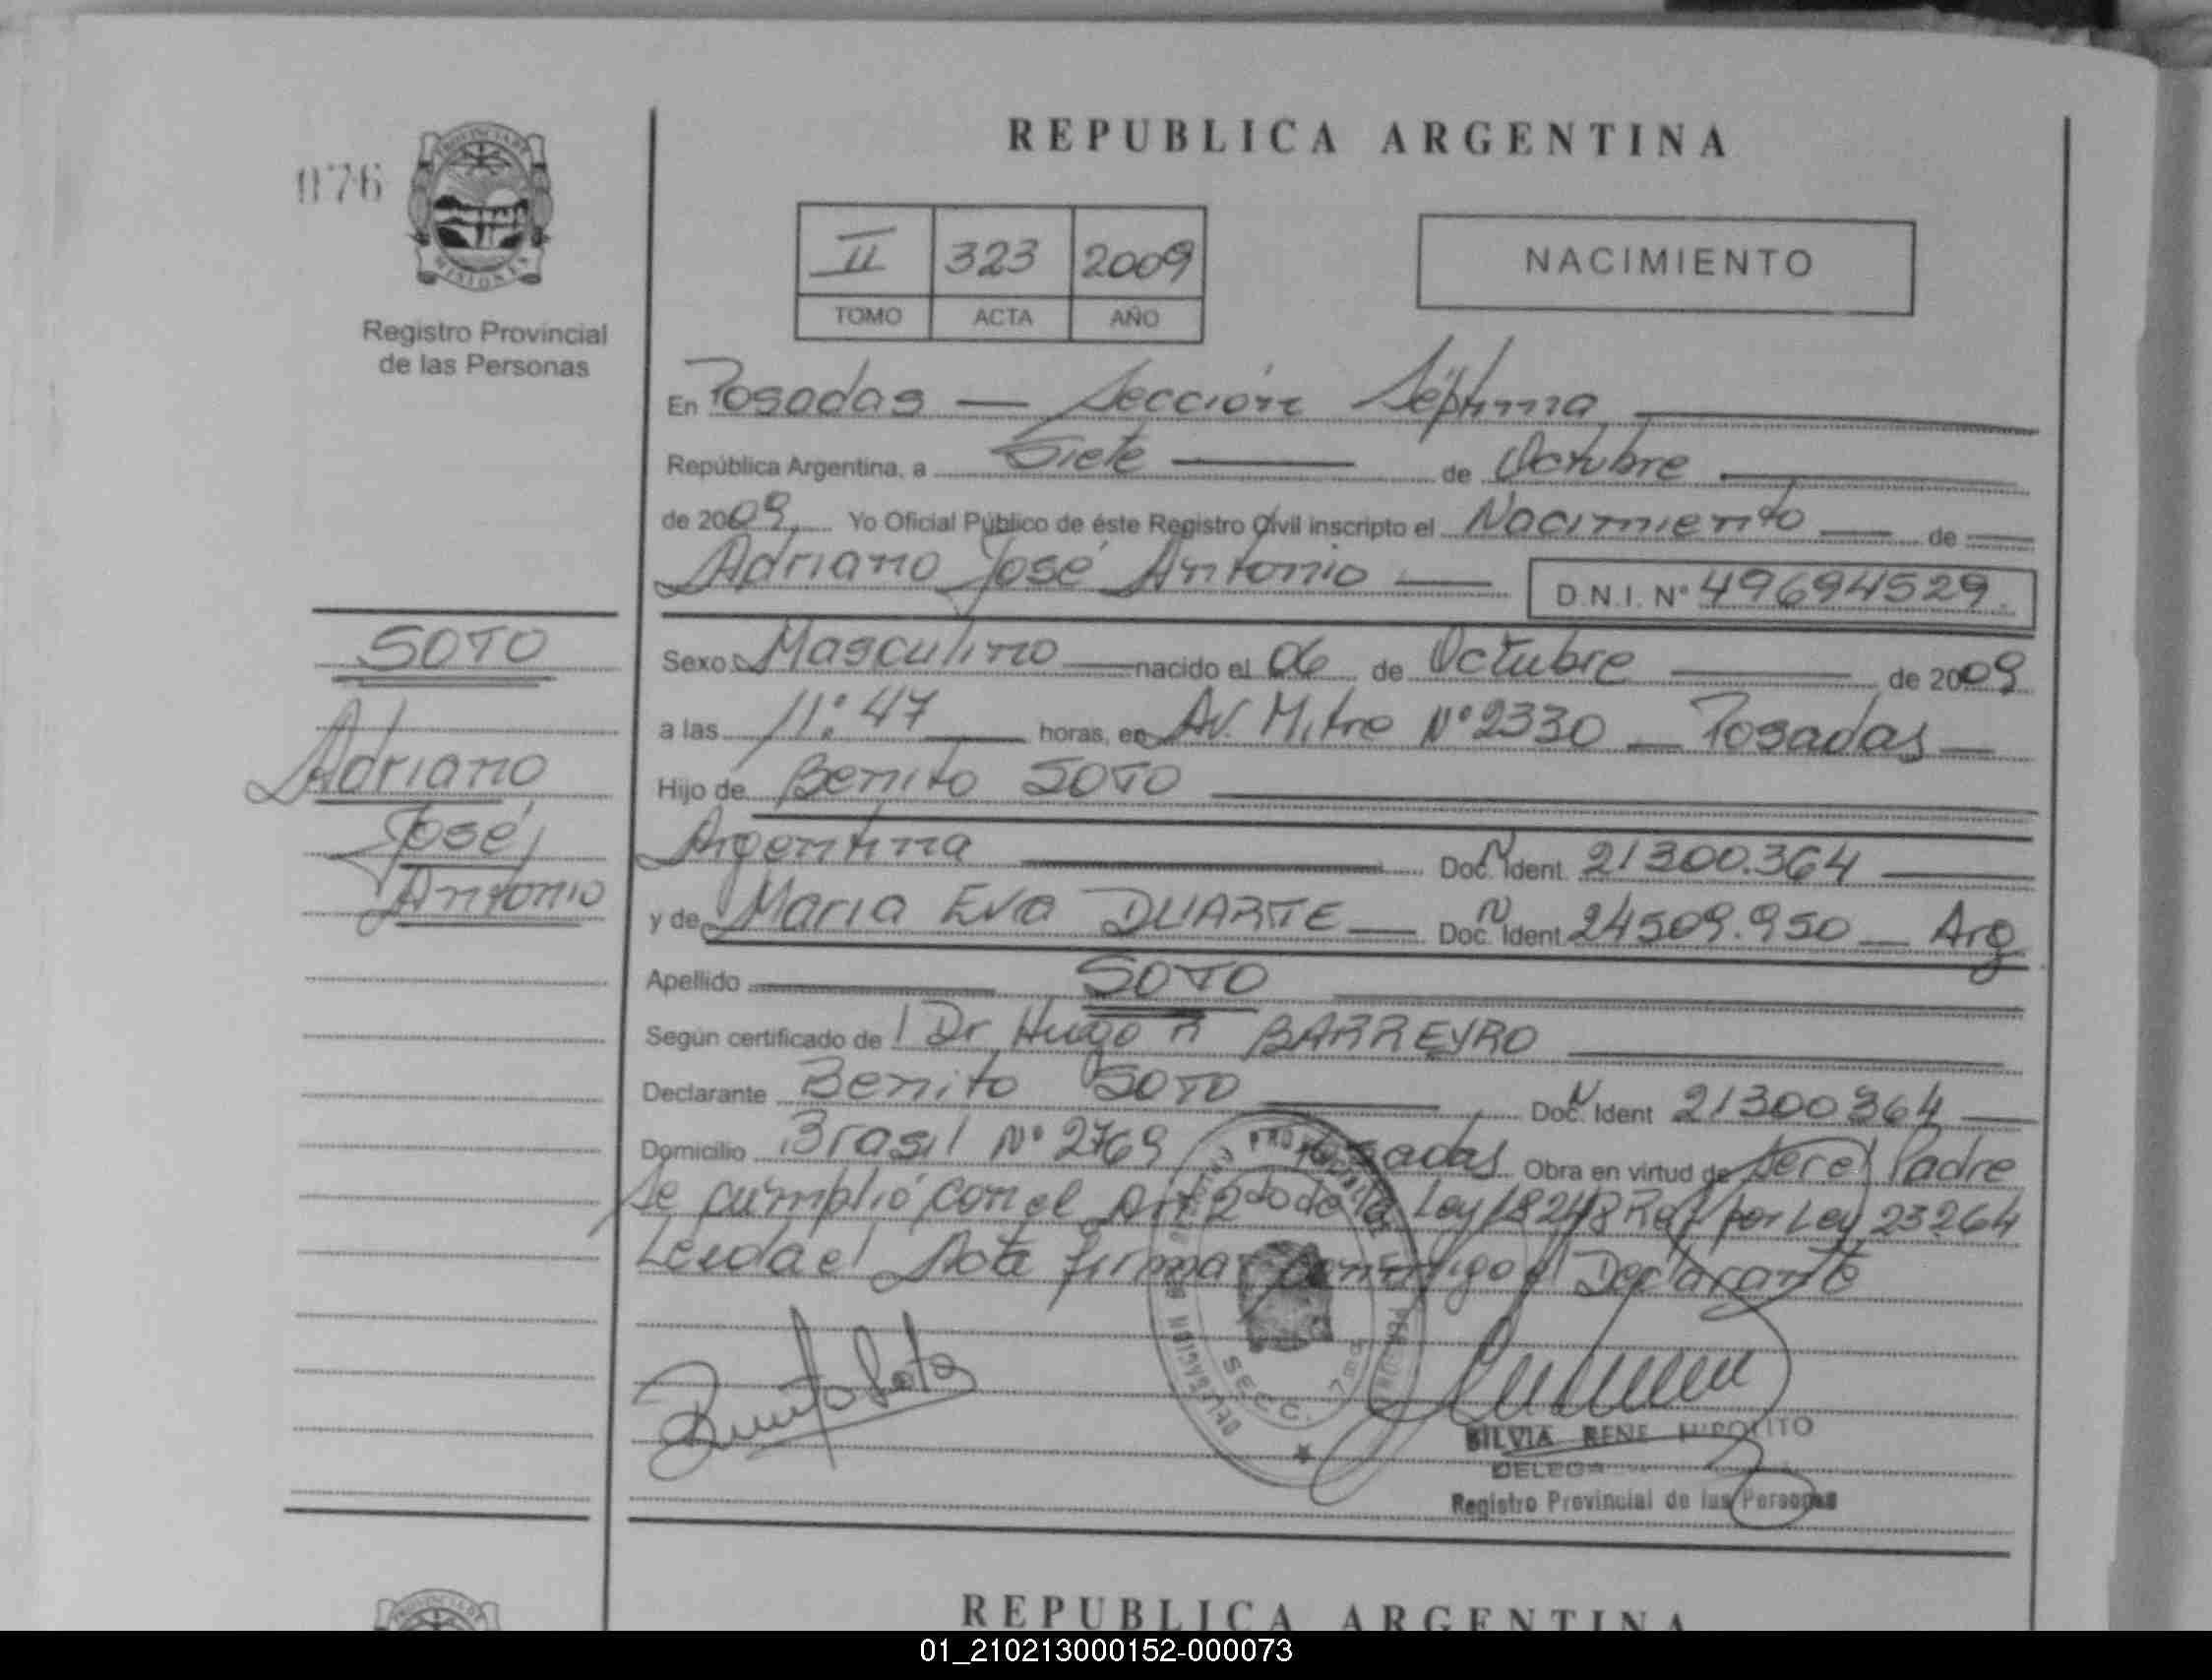 REPUBLICA ARGENTINA
076
PROVINCIA DE
MISIONES
Registro Provincial
de las Personas
II 323 2009
TOMO ACTA AÑO
NACIMIENTO
En Posadas — Sección Séptima
República Argentina, a Siete — de Octubre
de 2009, Yo Oficial Público de éste Registro Civil inscripto el Nacimiento — de
Adriano José Antonio — D.N.I. Nº 49694529.
SOTO
Adriano
José
Antonio
Sexo Masculino — nacido el 06 de Octubre — de 2009
a las 11:47 — horas, en Av. Mitre Nº 2330 — Posadas —
Hijo de Benito SOTO
Argentina — Doc. Ident. N 21300.364 —
y de Maria Eva DUARTE — Doc. Ident. N 24509.950 — Arg
Apellido — SOTO
Según certificado de Dr Hugo R BARREYRO
Declarante Benito SOTO — Doc. Ident N 21300364 —
Domicilio Brasil Nº 2769 Posadas Obra en virtud de ser el Padre
Se cumplió con el Art 2do de la Ley 18248 Ref por Ley 23264
Leida el Acta firma conmigo el Declarante
Benito Soto
SECC. 7ma
SILVIA RENE HIPOLITO
Registro Provincial de las Personas
REPUBLICA ARGENTINA
01_210213000152-000073